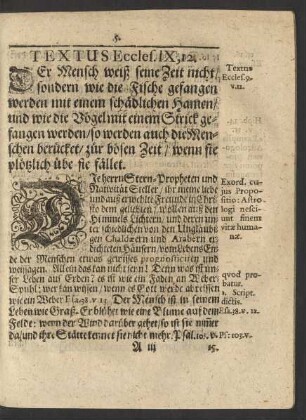 5.
TEXTUS Eccles. IX, 12.
DEr Mensch weiß seine Zeit nicht/
sondern wie die Fische gefangen
werden mit einem schädlichen Hamen/
und wie die Vögel mit einem Strick ge-
fangen werden/so werden auch die Men-
schen berücket/ zur bösen Zeit/ wenn sie
plötzlich übe sie fället.
Textus
Eccles. 9.
v. 12.
DIe herrn Stern-Propheten und
Nativität Steller/ ihr meine liebe
und auserwehlte Freunde in Chri-
sto dem geliebten/ wollen auß den
Himmels Lichtern/ und deren un-
terschiedlichen von den Unglaubi-
gen Chaldæern und Arabern er-
dichteten Häusern/ vom Lebens En-
de der Menschen etwas gewisses prognosticiren und
weissagen. Allein das kan nicht seyn! Denn was ist un-
ser Leben auf Erden? es ist wie ein Faden an Weber-
Spuhl: wer kan wissen/ wenn es Gott werde abreissen
wie ein Weber Esa. 38. v. 12. Der Mensch ist in seinem
Leben wie Graß. Er blühet wie eine Blume auf dem
Felde: wenn der Wind darüber gehet/ so ist sie nimer
da/ und ihre Stätte kennet sie nicht mehr. Psal. 103. v.
Exord. cu-
jus Propo-
sitio: Astro-
logi nesci-
unt finem
vitæ huma-
næ.
qvod pro-
batur.
1. Script.
dictis.
Esa. 38. v. 12.
Ps: 103. v.
A iij
15.